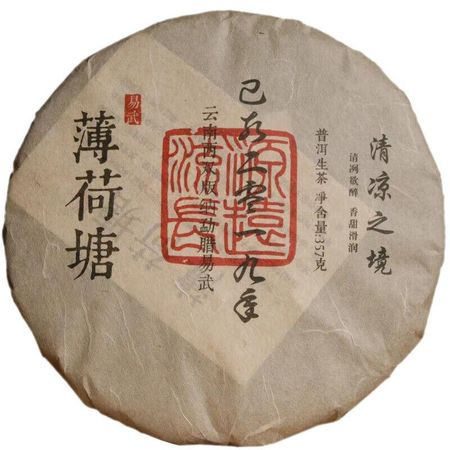 清凉之境
清冽欲醉 香甜滑润
普洱生茶 凈含量:357克
己亥二零一九年
源遠流長
云南西双版纳勐腊易武
易武
薄荷塘